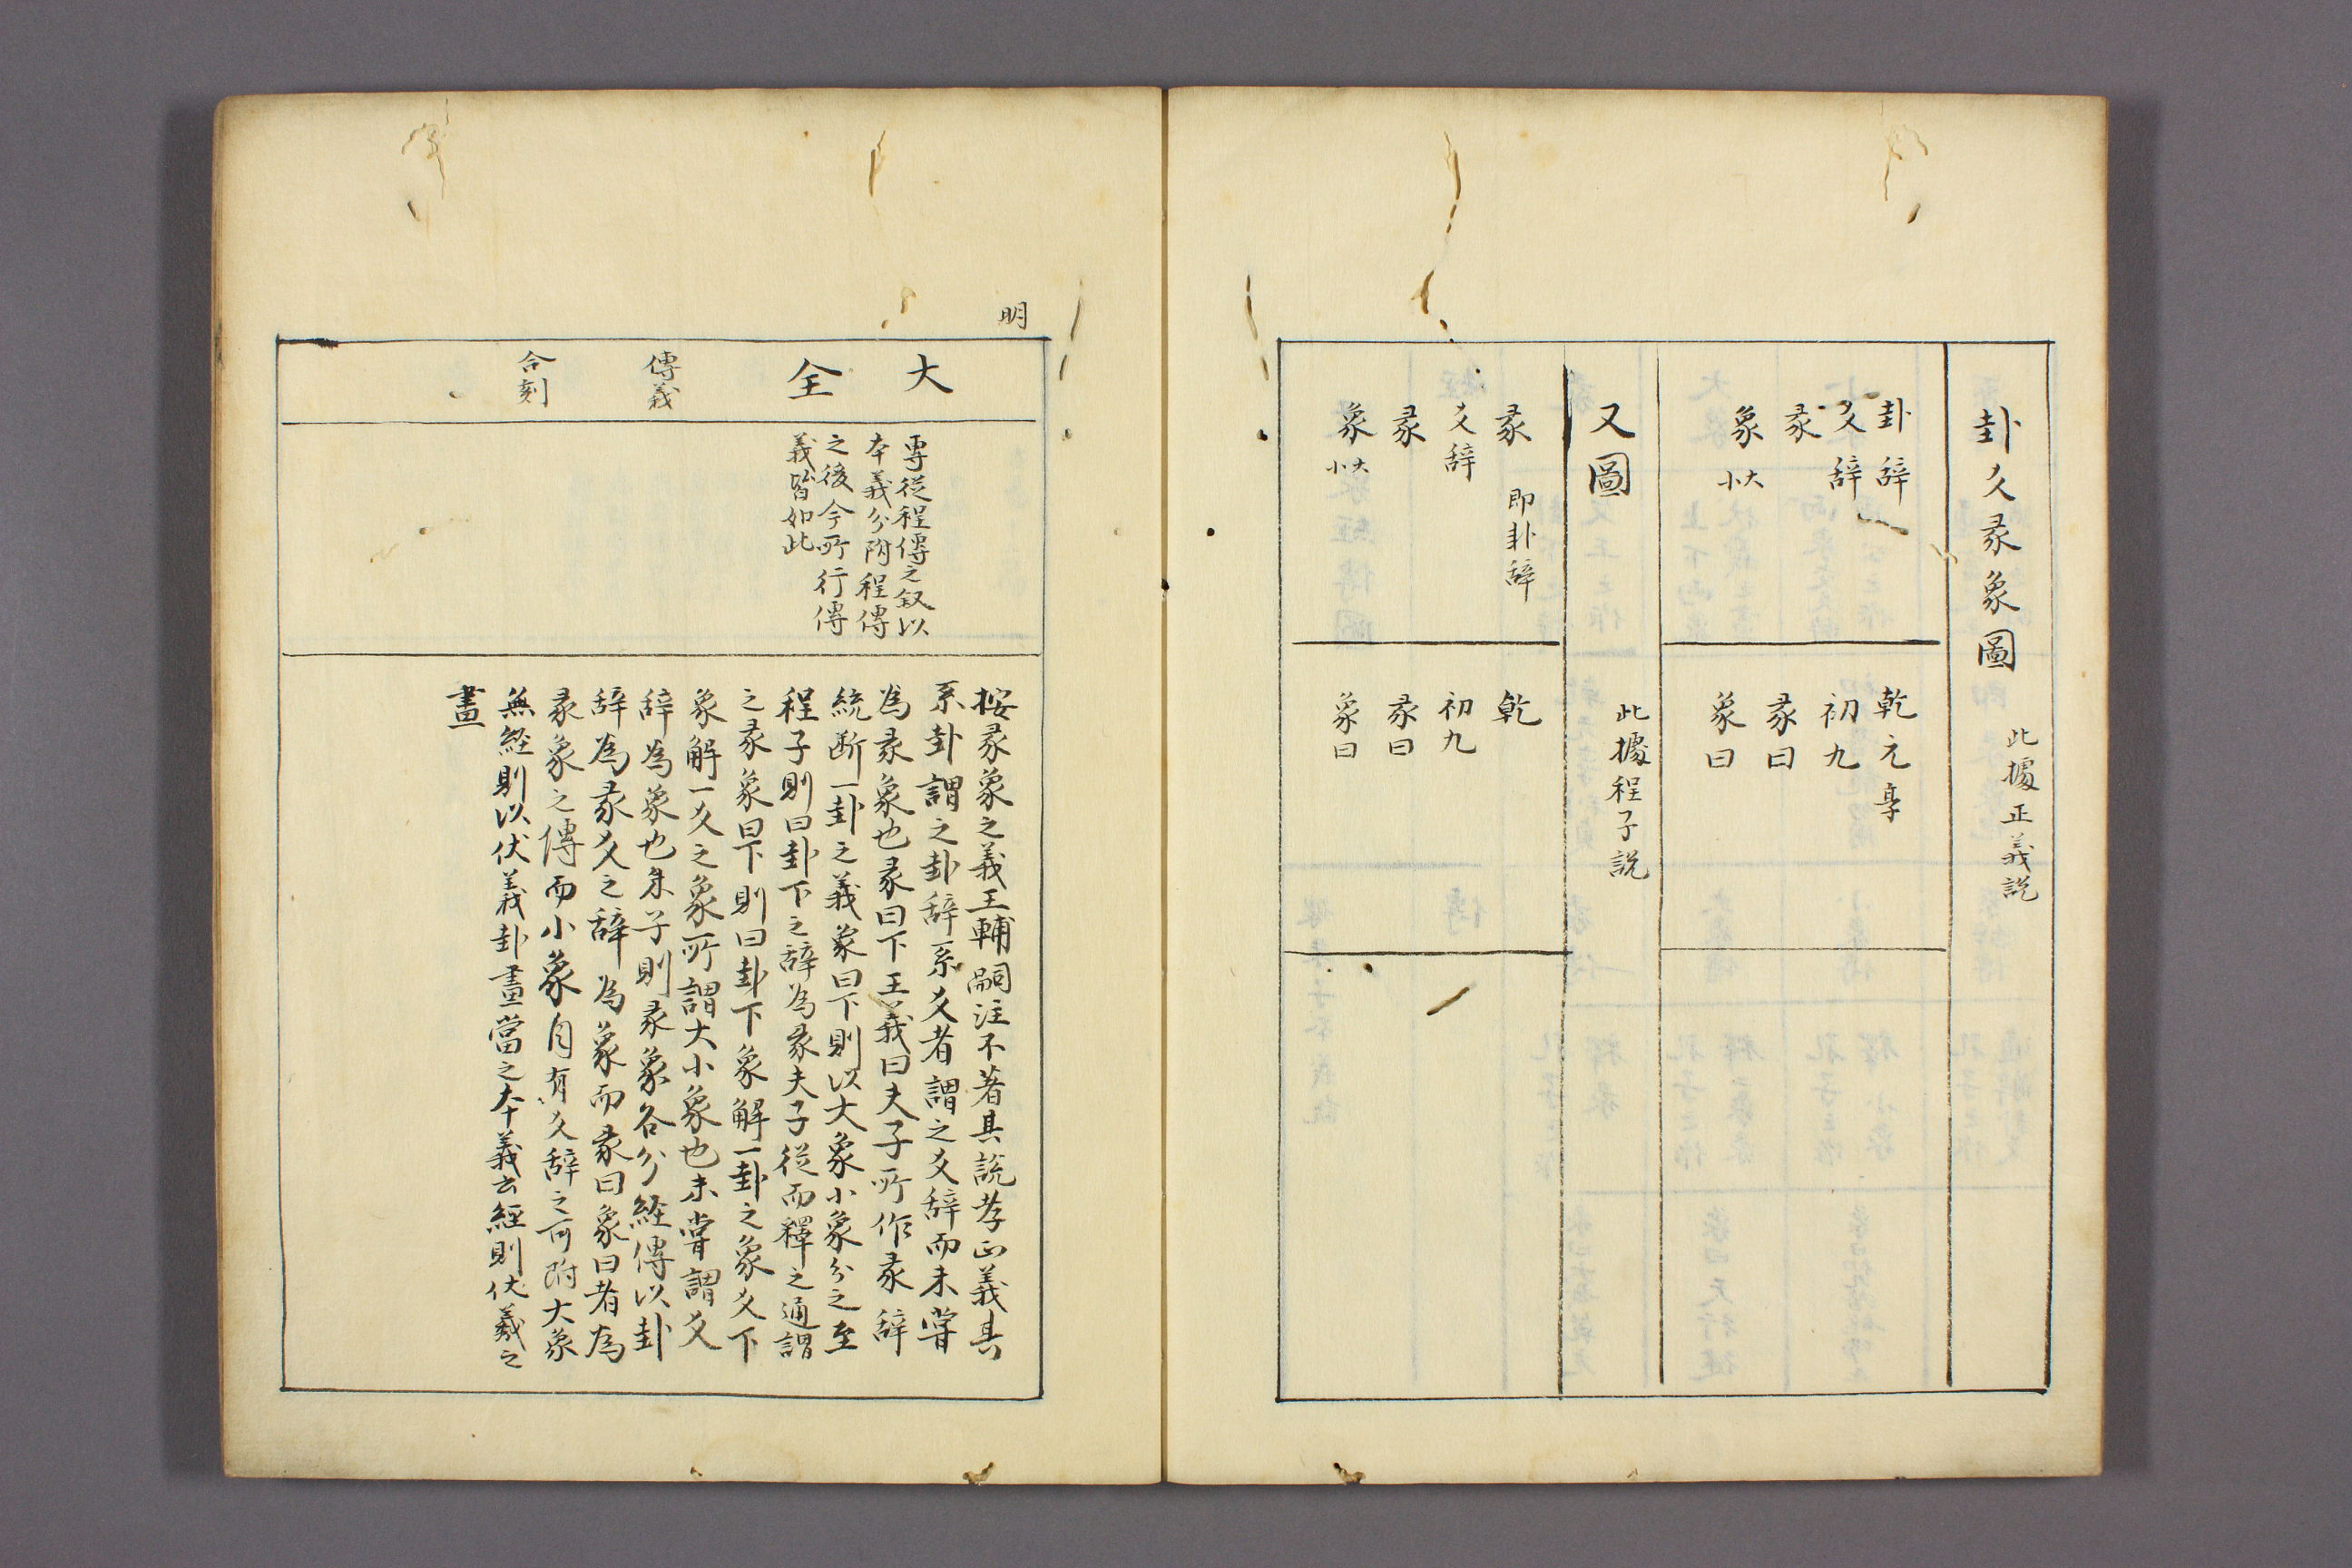 卦爻彖象圖
此據正義說
卦辞
爻辞
彖
象大小
乾元亨
初九
彖曰
象曰
又圖
此據程子說
彖 即卦辞
爻辞
彖
象大小
乾
初九
彖曰
象曰
明
大
全
傳義
合刻
專從程傳之叙以
本義分附程傳
之後今所行傳
義皆如此
按彖象之義王輔嗣注不著其說孝正義具
系卦謂之卦辞系爻者謂之爻辞而未甞
為彖象也彖曰下王義曰夫子所作彖辞
統断一卦之義象曰下則以大象小象分之至
程子則曰卦下之辞為彖夫子從而釋之通謂
之彖象曰下則曰卦下象解一卦之象爻下
象解一爻之象所謂大小象也未甞謂爻
辞為象也朱子則彖象各分経傳以卦
辞為彖爻之辞為象而彖曰象曰者為
彖象之傳而小象自有爻辞之可附大象
無経則以伏義卦畫當之本義云經則伏羲之
畫